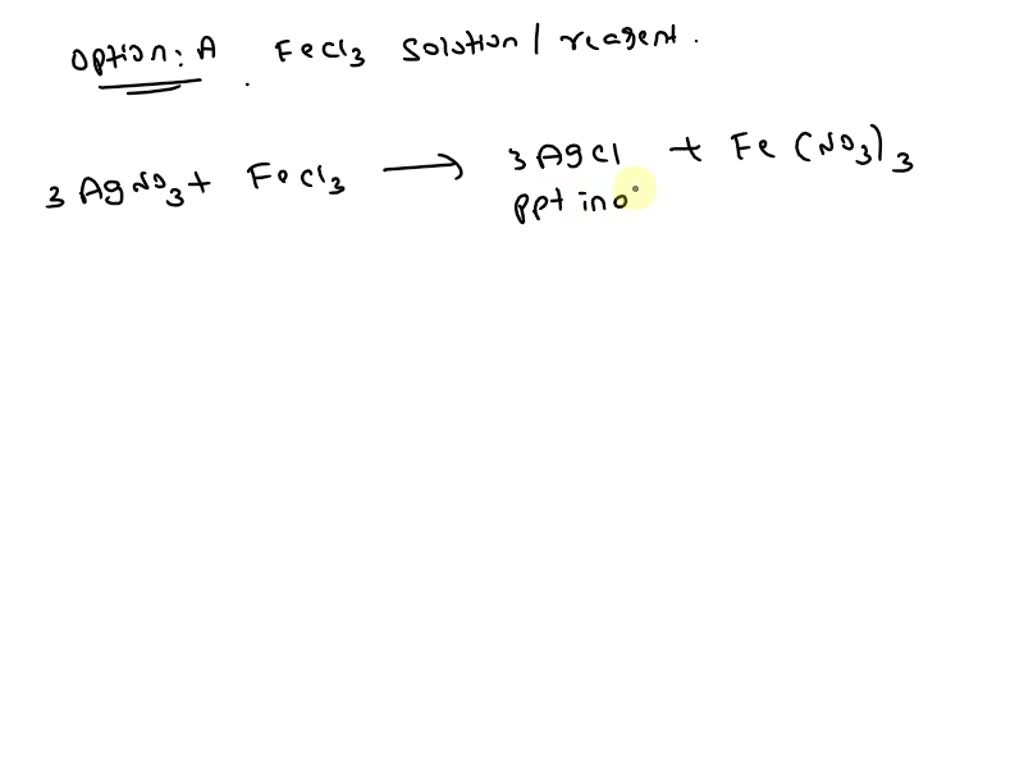 Option: A . FeCl3 Solution / reagent.
3 AgNO3 + FeCl3 → 3 AgCl + Fe (NO3)3
ppt in o